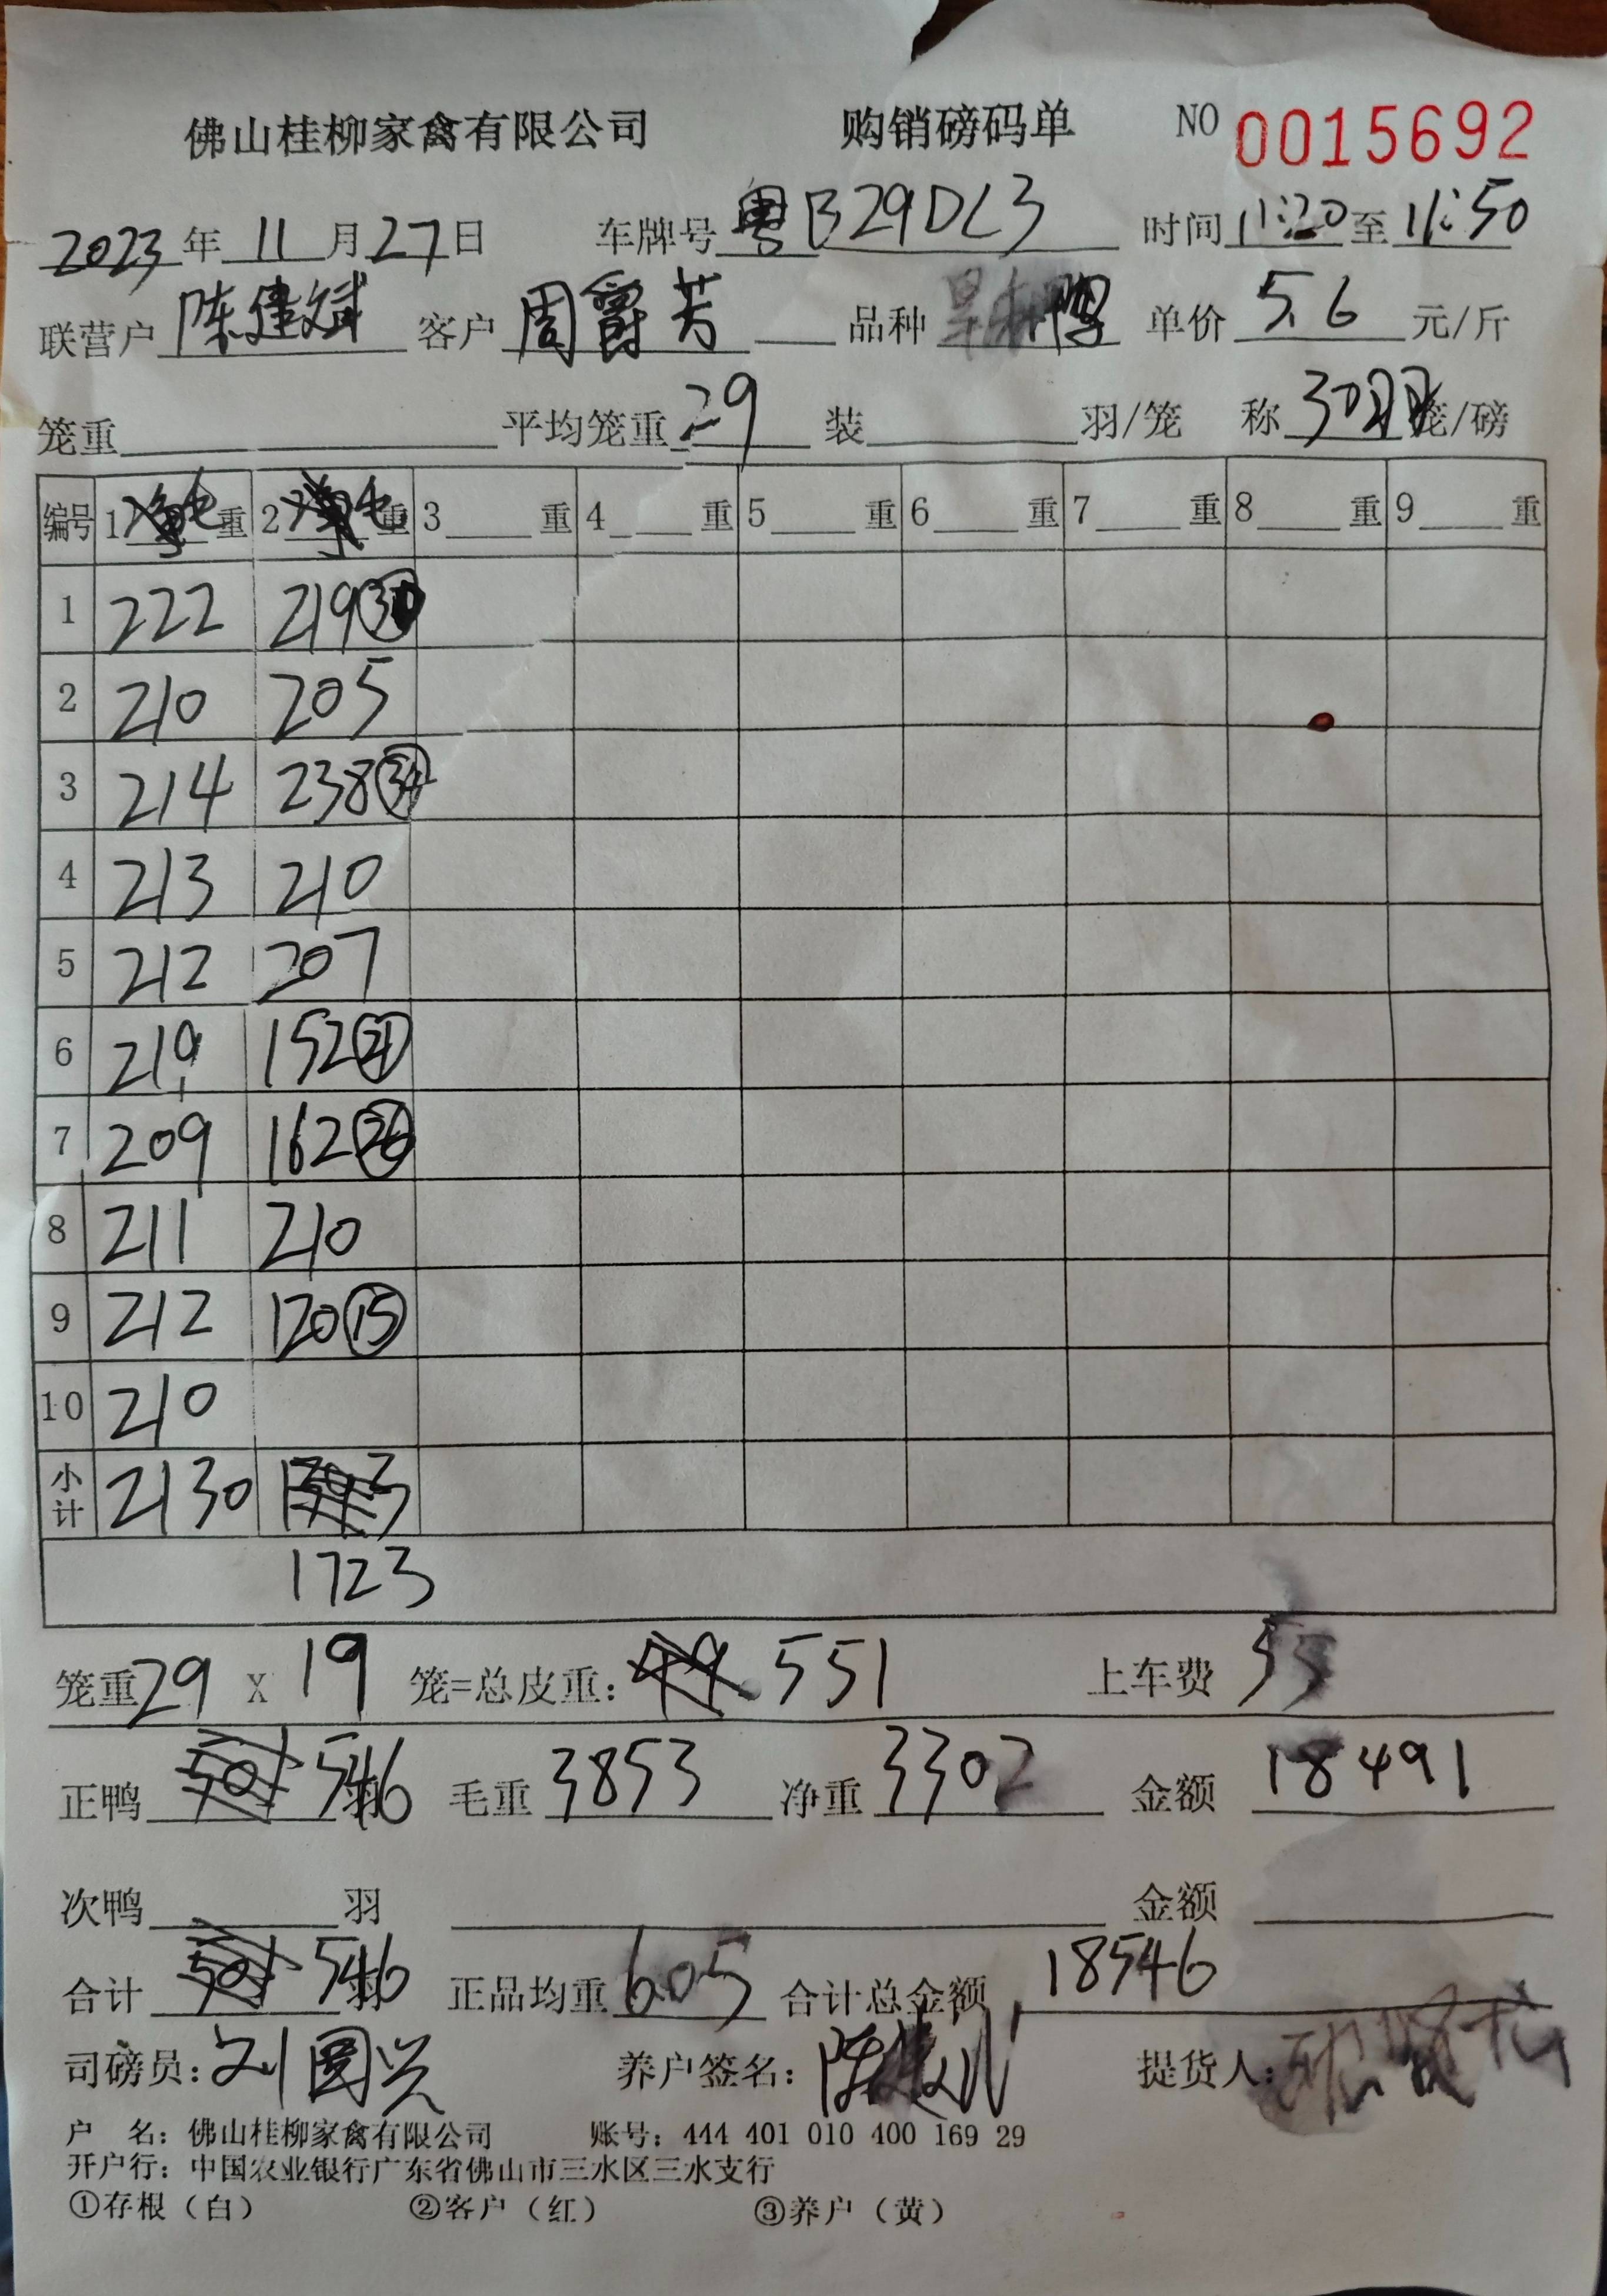 佛山桂柳家禽有限公司 购销磅码单 NO 0015692
2023年11月27日 车牌号 粤B29DL3 时间 11:20至11:50
联营户 陈建斌 客户 周爵芳 品种 鸭 单价 5.6 元/斤
笼重 平均笼重 29 装 羽/笼 称 30羽 笼/磅
编号 1 重 2 重 3 重 4 重 5 重 6 重 7 重 8 重 9 重
1 222 219
2 210 205
3 214 238 34
4 213 210
5 212 207
6 219 152 21
7 209 162 26
8 211 210
9 212 120 15
10 210
小计 2130
1723
笼重 29 X 19 笼=总皮重: 551 上车费 55
正鸭 546 羽 毛重 3853 净重 3302 金额 18491
次鸭 羽 金额
合计 546 羽 正品均重 605 合计总金额 18546
司磅员: 刘国兴 养户签名: 陈建斌 提货人:
户 名: 佛山桂柳家禽有限公司 账号: 444 401 010 400 169 29
开户行: 中国农业银行广东省佛山市三水区三水支行
①存根（白） ②客户（红） ③养户（黄）